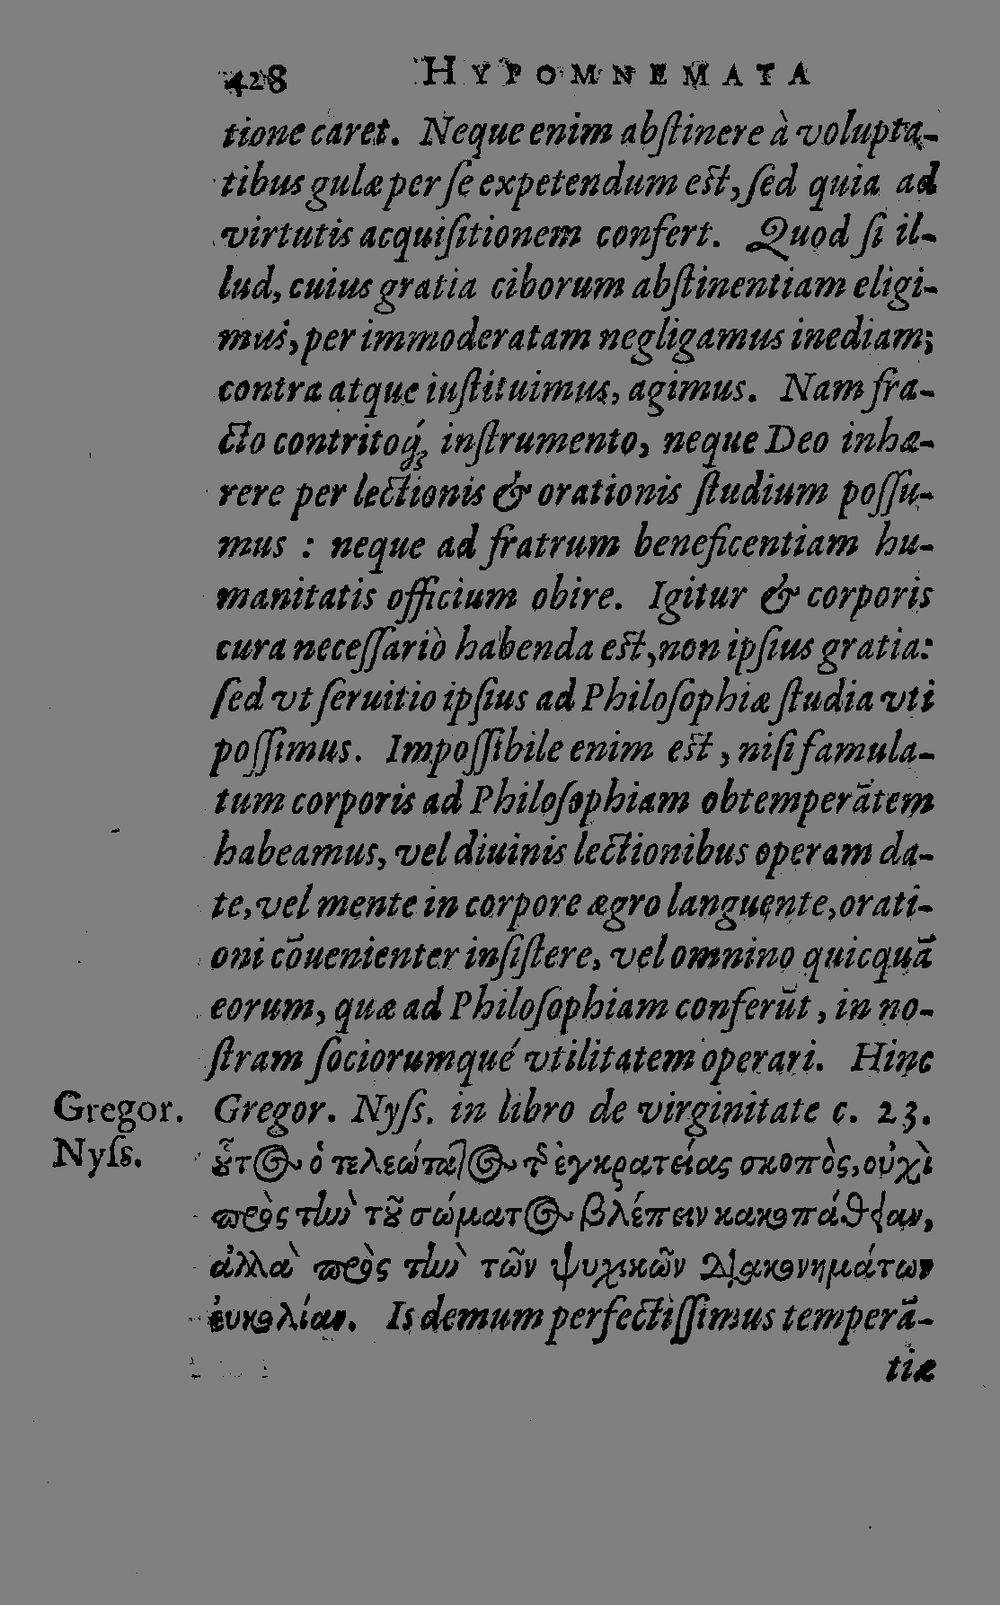 428 HYPOMNEMATA
tione caret. Neque enim abſtinere à volupta-
tibus gulæ per ſe expetendum eſt, ſed quia ad
virtutis acquiſitionem confert. Quod ſi il-
lud, cuius gratia ciborum abſtinentiam eligi-
mus, per immoderatam negligamus inediam;
contra atque iuſtituimus, agimus. Nam fra-
cto contritoq́; inſtrumento, neque Deo inhæ-
rere per lectionis & orationis ſtudium poſſu-
mus : neque ad fratrum beneficentiam hu-
manitatis officium obire. Igitur & corporis
cura neceſſariò habenda eſt, non ipſius gratia:
ſed vt ſeruitio ipſius ad Philoſophiæ ſtudia vti
poſſimus. Impoſſibile enim eſt, niſi famula-
tum corporis ad Philoſophiam obtemperãtem
habeamus, vel diuinis lectionibus operam da-
te, vel mente in corpore ægro languente, orati-
oni cõuenienter inſiſtere, vel omnino quicquã
eorum, quæ ad Philoſophiam conferũt, in no-
ſtram ſociorumqué vtilitatem operari. Hinc
Gregor. Nyſſ. in libro de virginitate c. 23.
Gregor.
Nyſs.
οὗτος ὁ τελεώτατος τῆς ἐγκρατείας σκοπὸς, οὐχὶ
πρὸς τὴν τοῦ σώματος βλέπειν κακοπάθειαν,
ἀλλὰ πρὸς τὴν τῶν ψυχικῶν διακονημάτων
ἐυκολίαν. Is demum perfectiſſimus temperã-
tiæ